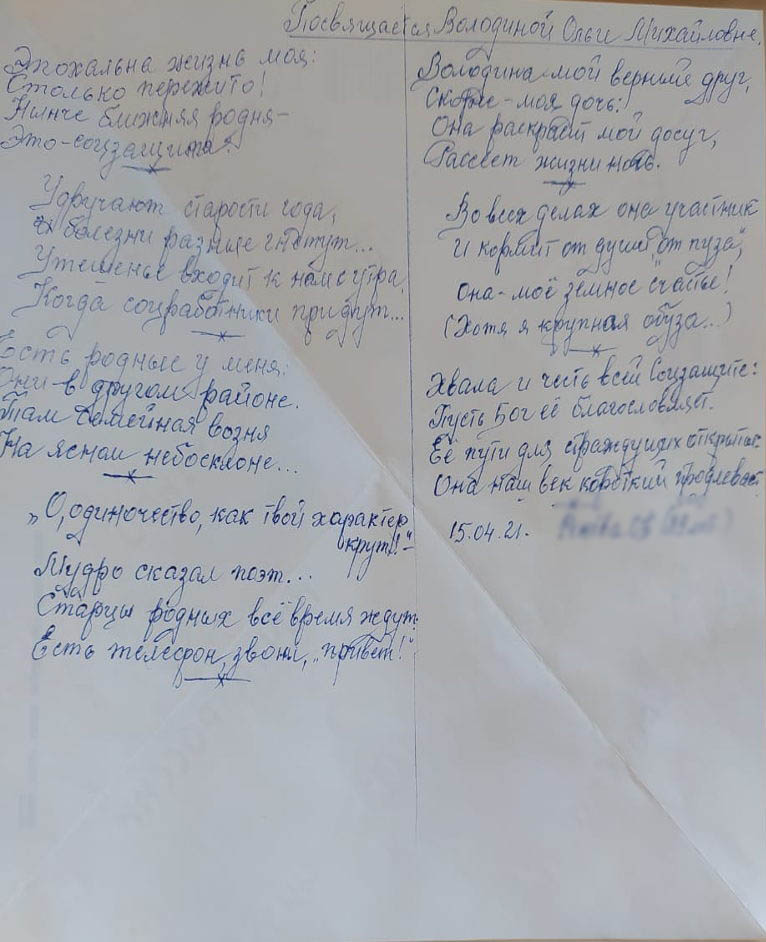 Посвящается Володиной Ольге Михайловне.
Эпохальна жизнь моя:
Столько пережито!
Нынче ближняя родня –
Это – соцзащита.
Удручают старости года,
И болезни разные гнетут...
Утешенье входит к нам с утра,
Когда соцработники придут...
Есть родные у меня:
Они – в другом районе.
Там семейная возня
На ясном небосклоне...
„О, одиночество, как твой характер
крут!“ –
Мудро сказал поэт...
Старцы родных всё время ждут:
Есть телефон, звони, „привет!“
Володина – мой верный друг,
Скорее – моя дочь:
Она раскрасит мой досуг,
Рассеет жизни ночь.
Во всех делах она участник
И кормит от души, „от пуза“,
Она – моё земное „счастье“!
(Хотя я крупная обуза...)
Хвала и честь всей Соцзащите:
Пусть Бог её благословляет.
Её пути для страждущих открытые
Она наш век короткий продлевает.
15.04.21.